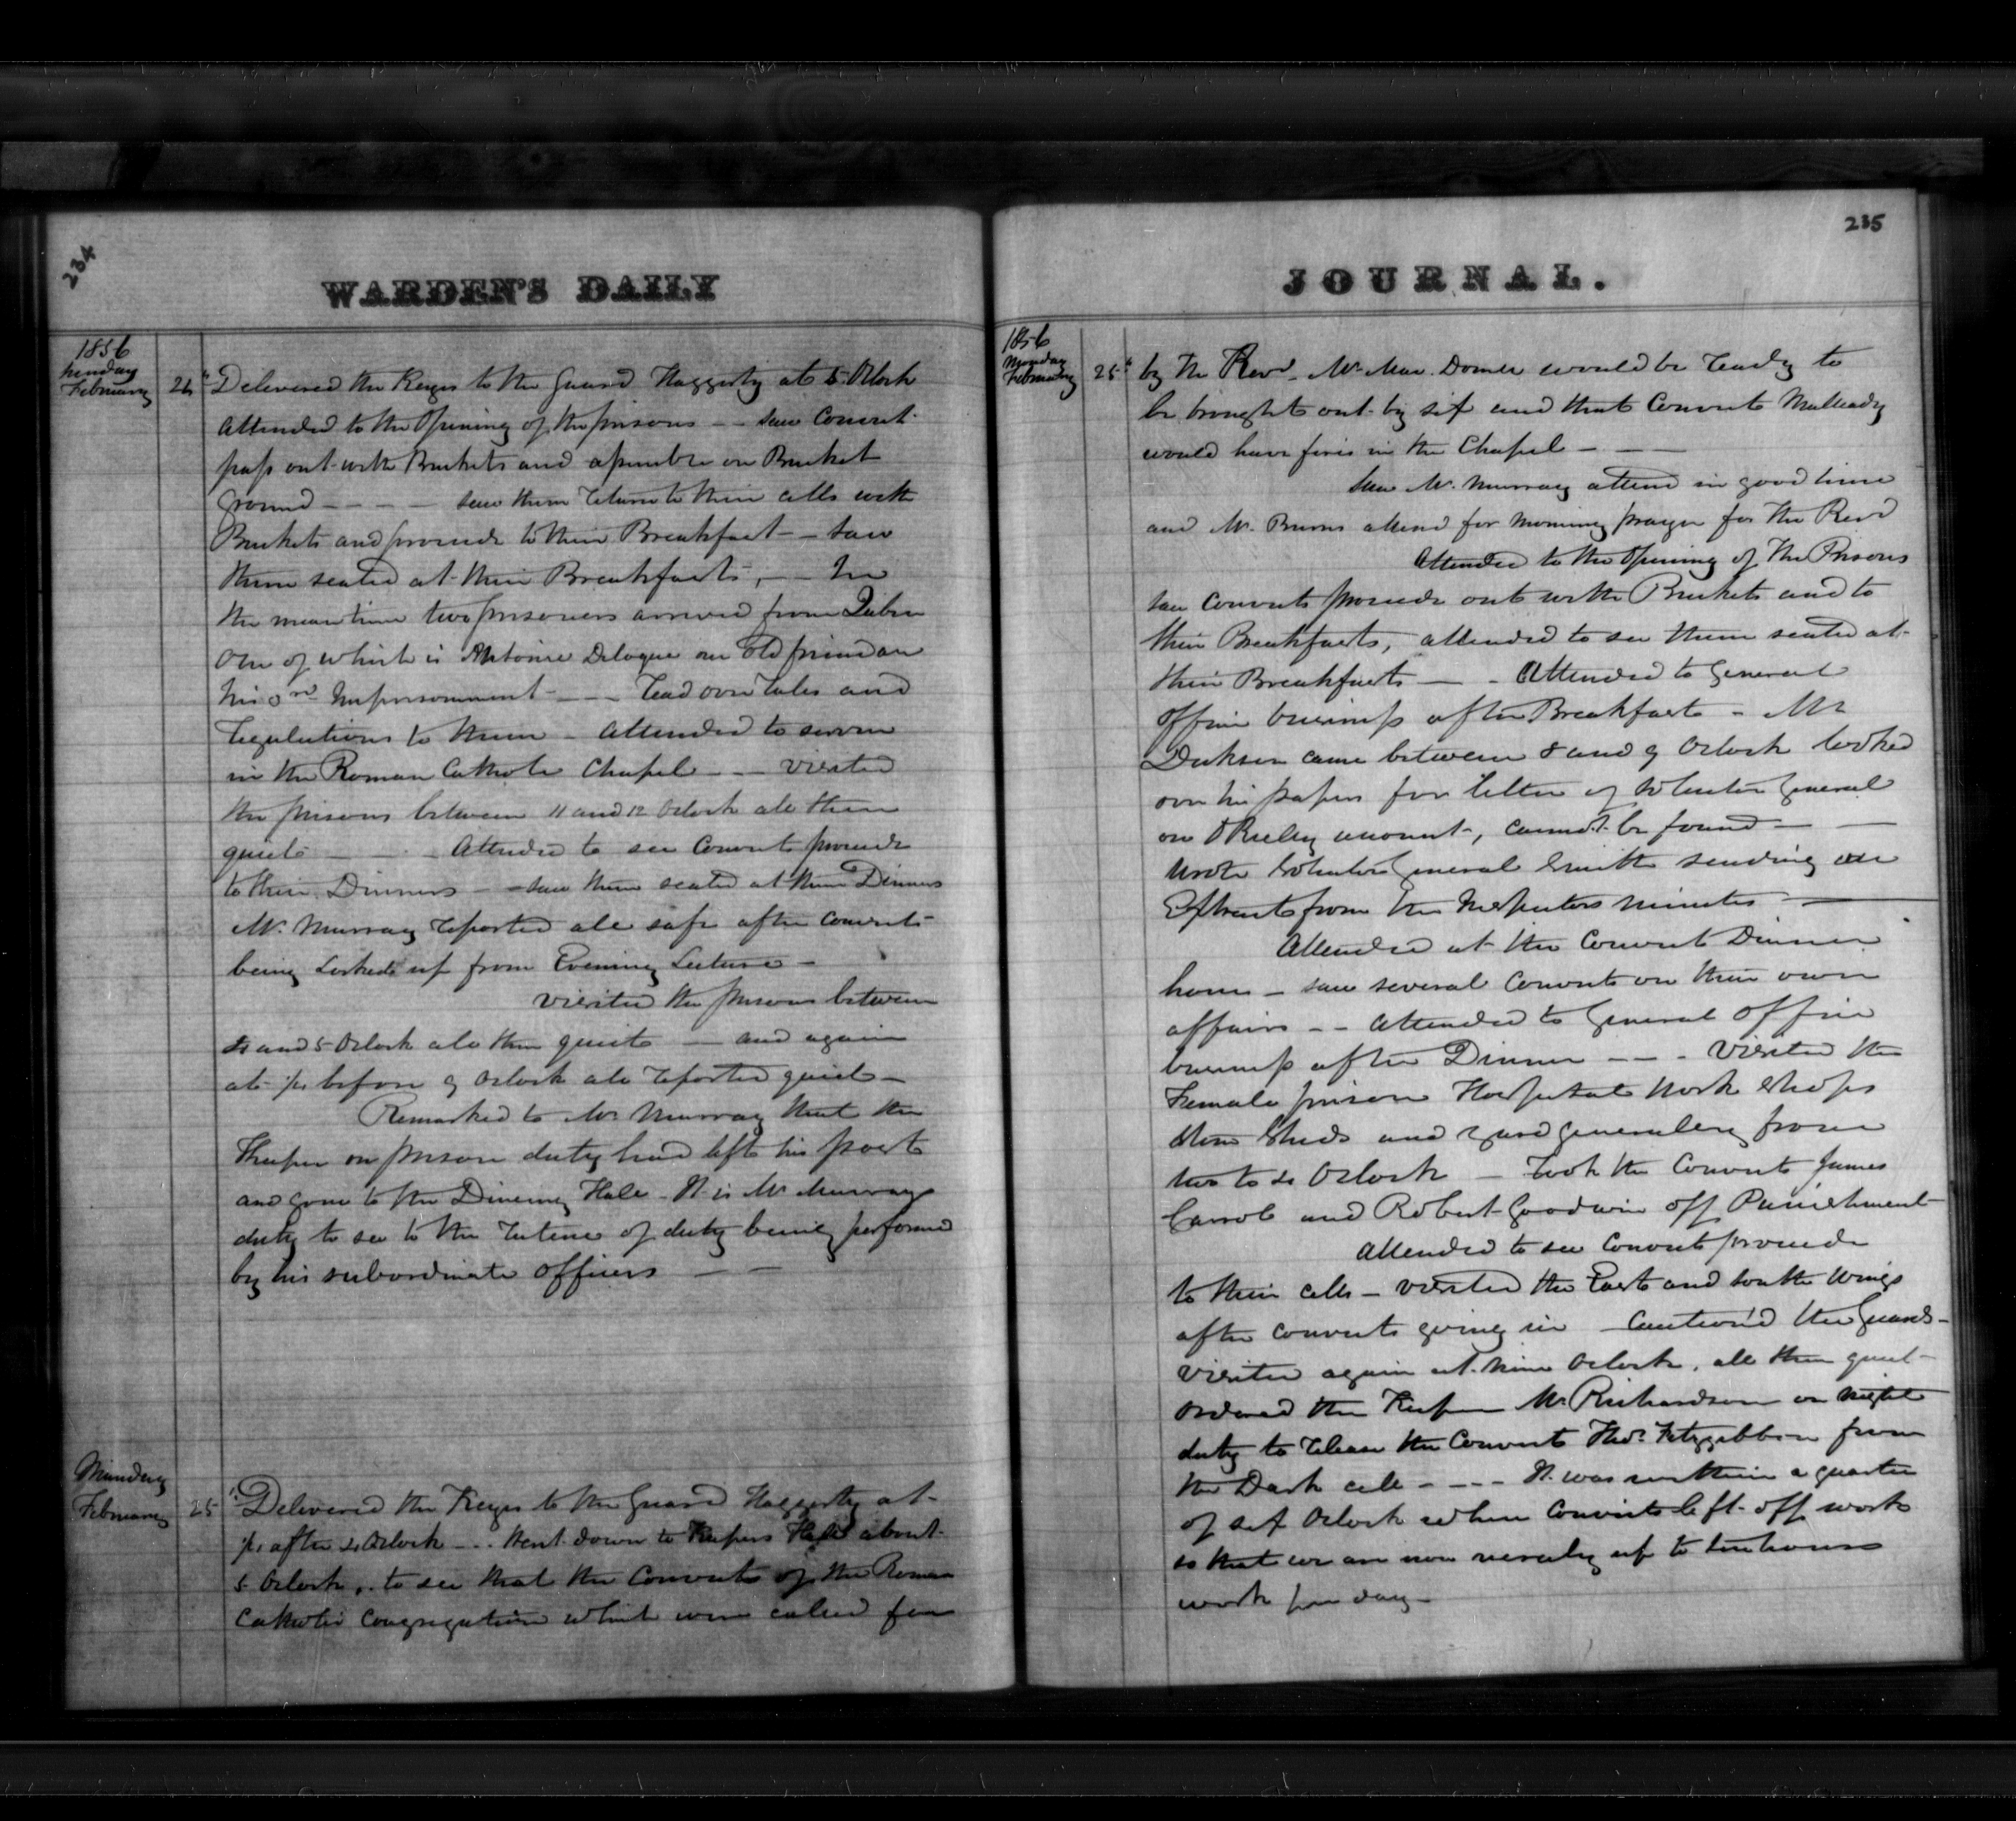 234
WARDEN'S DAILY
1856
Sunday
February 24" Delivered the Keys to the Guard Haggerty at 5 Oclock
Attended to the Opening of the prisons -- saw Convict
pass out with Buckets and assemble on Bucket
ground - - - - saw them return to their cells with
Buckets and proceede to their Breakfast -- saw
them seated at their Breakfasts, -- In
the meantime two prisoners arrived from
One of which is Antoine Delogue an old friend on
his 3rd Imprisonment - - - read over rules and
regulations to them - Attended to
in the Roman Catholic Chapel - - - visited
the prisons between 11 and 12 Oclock all then
quiet - - - Attended to see Convicts proceede
to their Dinners -- saw them seated at their Dinners
Mr. Murray reported all safe after Convicts
being Locked up from Evening Lecture -
visited the prisons between
4 and 5 Oclock all then quiet - and again
at ¼ before 9 Oclock all reported quiet -
Remarked to Mr Murray that the
Keeper on prison duty had left his post
and gone to the Dineing Hall - It is Mr Murrays
duty to see to the rutine of duty being performed
by his subordinate officers - -
Munday
February 25" Delivered the Keys to the Guard Haggerty at
¼ after 4 Oclock - .. Went down to Keepers Hall about
5 Oclock, to see that the Convicts of the Roman
Catholic Congregation which were called for
235
JOURNAL.
1856
Monday
February 25" by the Revd. Mr. Mac Donell would be ready to
be brought out by six and that Convict Mulleady
would have fires in the Chapel - - -
Saw Mr. Murray attend in good time
and Mr. Burns attend for Morning prayer for the Revd
Attended to the Opening of the Prisons
saw Convicts proceede out with Buckets and to
their Breakfasts, attended to see them seated at
their Breakfasts - - Attended to General
Office business after Breakfast - Mr
Dickson came between 8 and 9 Oclock looked
over his papers for letter of Solicitor General
on account, cannot be found - -
Wrote Solicitor General Smith sending an
Extract from the Inspectors minutes - -
Attended at the Convict Dinner
hour - saw several Convicts on their own
affairs -- Attended to General Office
business after Dinner - - - Visited the
Female prison Hospital Work Shops
Stone Sheds and yard generally from
two to 4 Oclock - Took the Convicts James
Carrol and Robert Goodwin off Punishment
Attended to see Convicts proceede
to their cells - visited the East and South Wings
after Convicts going in - Caution'd the Guards -
visited again at nine Oclock, all then quiet -
Ordered the Keeper Mr Richardson on night
duty to release the Convict Thos. Fitzgibbon from
the Dark cell - - - - It was within a quarter
of six Oclock when Convicts left off work
so that we are now nearly up to ten hours
work per day -